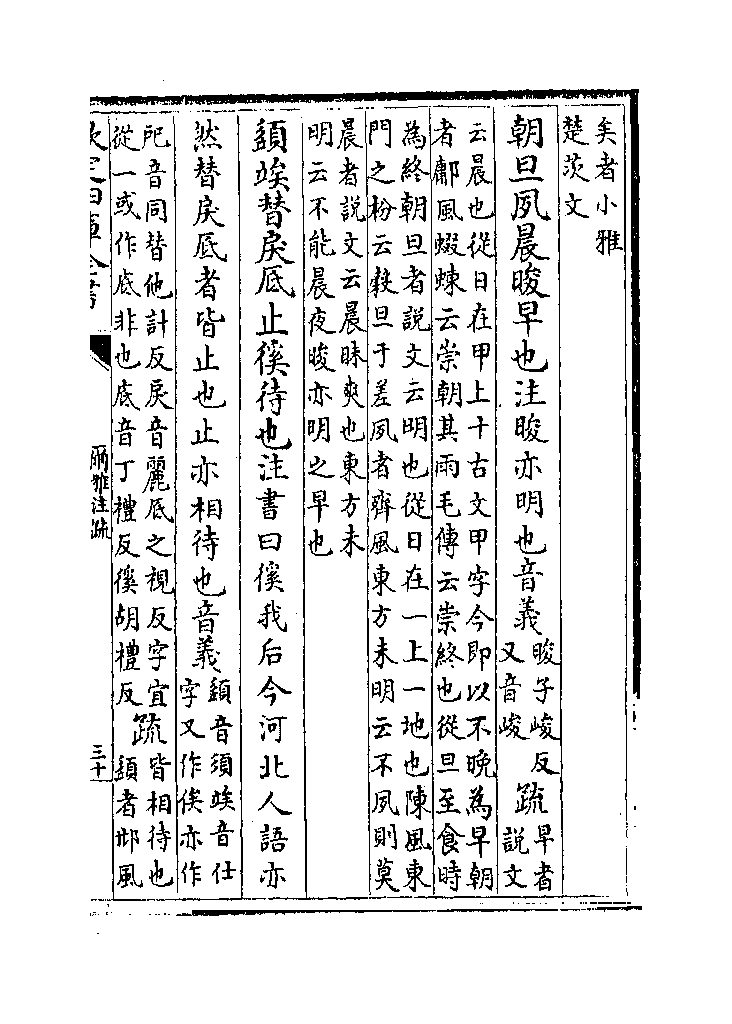 矣者小雅
楚茨文
朝旦夙晨晙早也注晙亦明也音義
晙子峻反
又音峻
疏
早者
説文
云晨也從日在甲上十古文甲字今即以不晚為早朝
者鄘風蝃蝀云崇朝其雨毛傳云崇終也從旦至食時
為終朝旦者説文云明也從日在一上一地也陳風東
門之枌云榖旦于差夙者齊風東方未明云不夙則莫
晨者説文云晨昧爽也東方未
明云不能晨夜晙亦明之早也
䇓竢替戾厎止徯待也注書曰徯我后今河北人語亦
然替戾厎者皆止也止亦相待也音義
䇓音須竢音仕
字又作俟亦作
音同替他計反戾音麗厎之視反字宜
從一或作底非也底音丁禮反徯胡禮反
疏
皆相待也
䇓者邶風
欽定四庫全書
爾雅注疏
三十